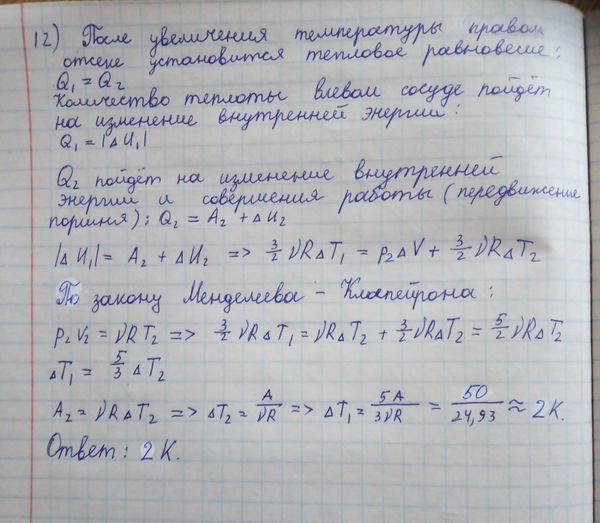 12) После увеличения температуры правом
отсеке установится тепловое равновесие:
Q₁ = Q₂
Количество теплоты влевом сосуде пойдёт
на изменение внутренней энергии:
Q₁ = |ΔU₁|
Q₂ пойдёт на изменение внутренней
энергии и совершения работы (передвижение
поршня): Q₂ = A₂ + ΔU₂
|ΔU₁| = A₂ + ΔU₂ => 3/2 νRΔT₁ = p₂ΔV + 3/2 νRΔT₂
По закону Менделеева - Клапейрона:
p₂V₂ = νRT₂ => 3/2 νRΔT₁ = νRΔT₂ + 3/2 νRΔT₂ = 5/2 νRΔT₂
ΔT₁ = 5/3 ΔT₂
A₂ = νRΔT₂ => ΔT₂ = A/νR => ΔT₁ = 5A/3νR = 50/24,93 ≈ 2K.
Ответ: 2K.